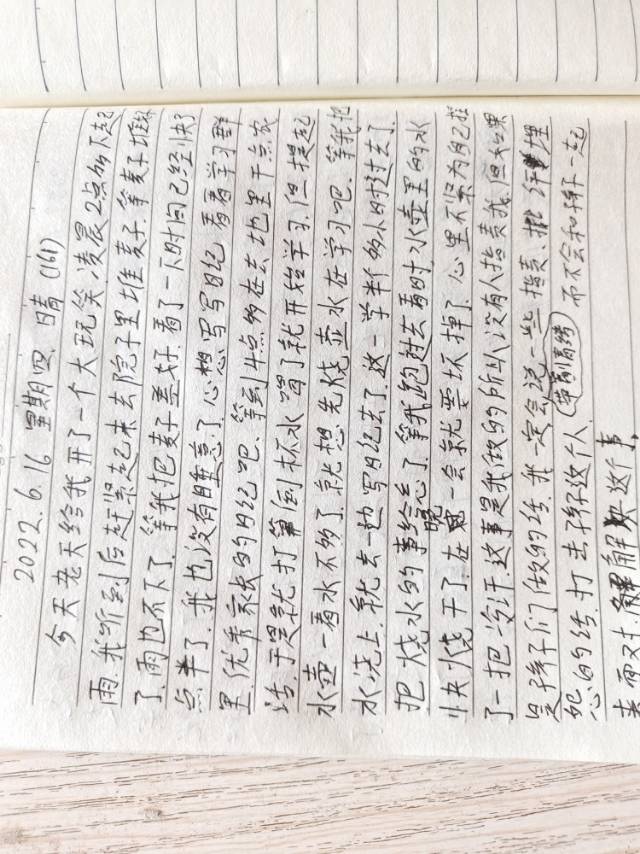 2022.6.16 星期四 晴 (161)
今天老天给我开了一个大玩笑凌晨2点多下起
雨.我听到后赶紧起来去院子里堆麦子.等麦子堆好
了.雨也不下了.等我把麦子盖好.看了一下时间已经快3
点半了.我也没有睡意了.心想写写日记 看看学习群
里优秀家长的日记吧.等到4点多在去地里干点农
活于是就打算倒杯水喝了就开始学习.但提起
水壶一看水不多了.就想先烧壶水在学习吧.等我把
水浇上.就去一边写日记去了.这一学半多小时过去了.
把烧水的事给忘了.等我跑过去看时水壶里的水
快烧干了.在晚一会就要坏掉了.心里不禁为自己捏
了一把冷汗.这事是我做的所以没有人指责我.但如果
是孩子们做的话.我一定会说一些指责.批评埋
怨的话.打击孩子这个人 带到高绪 而不会和孩子一起
来面对.解决这个事.